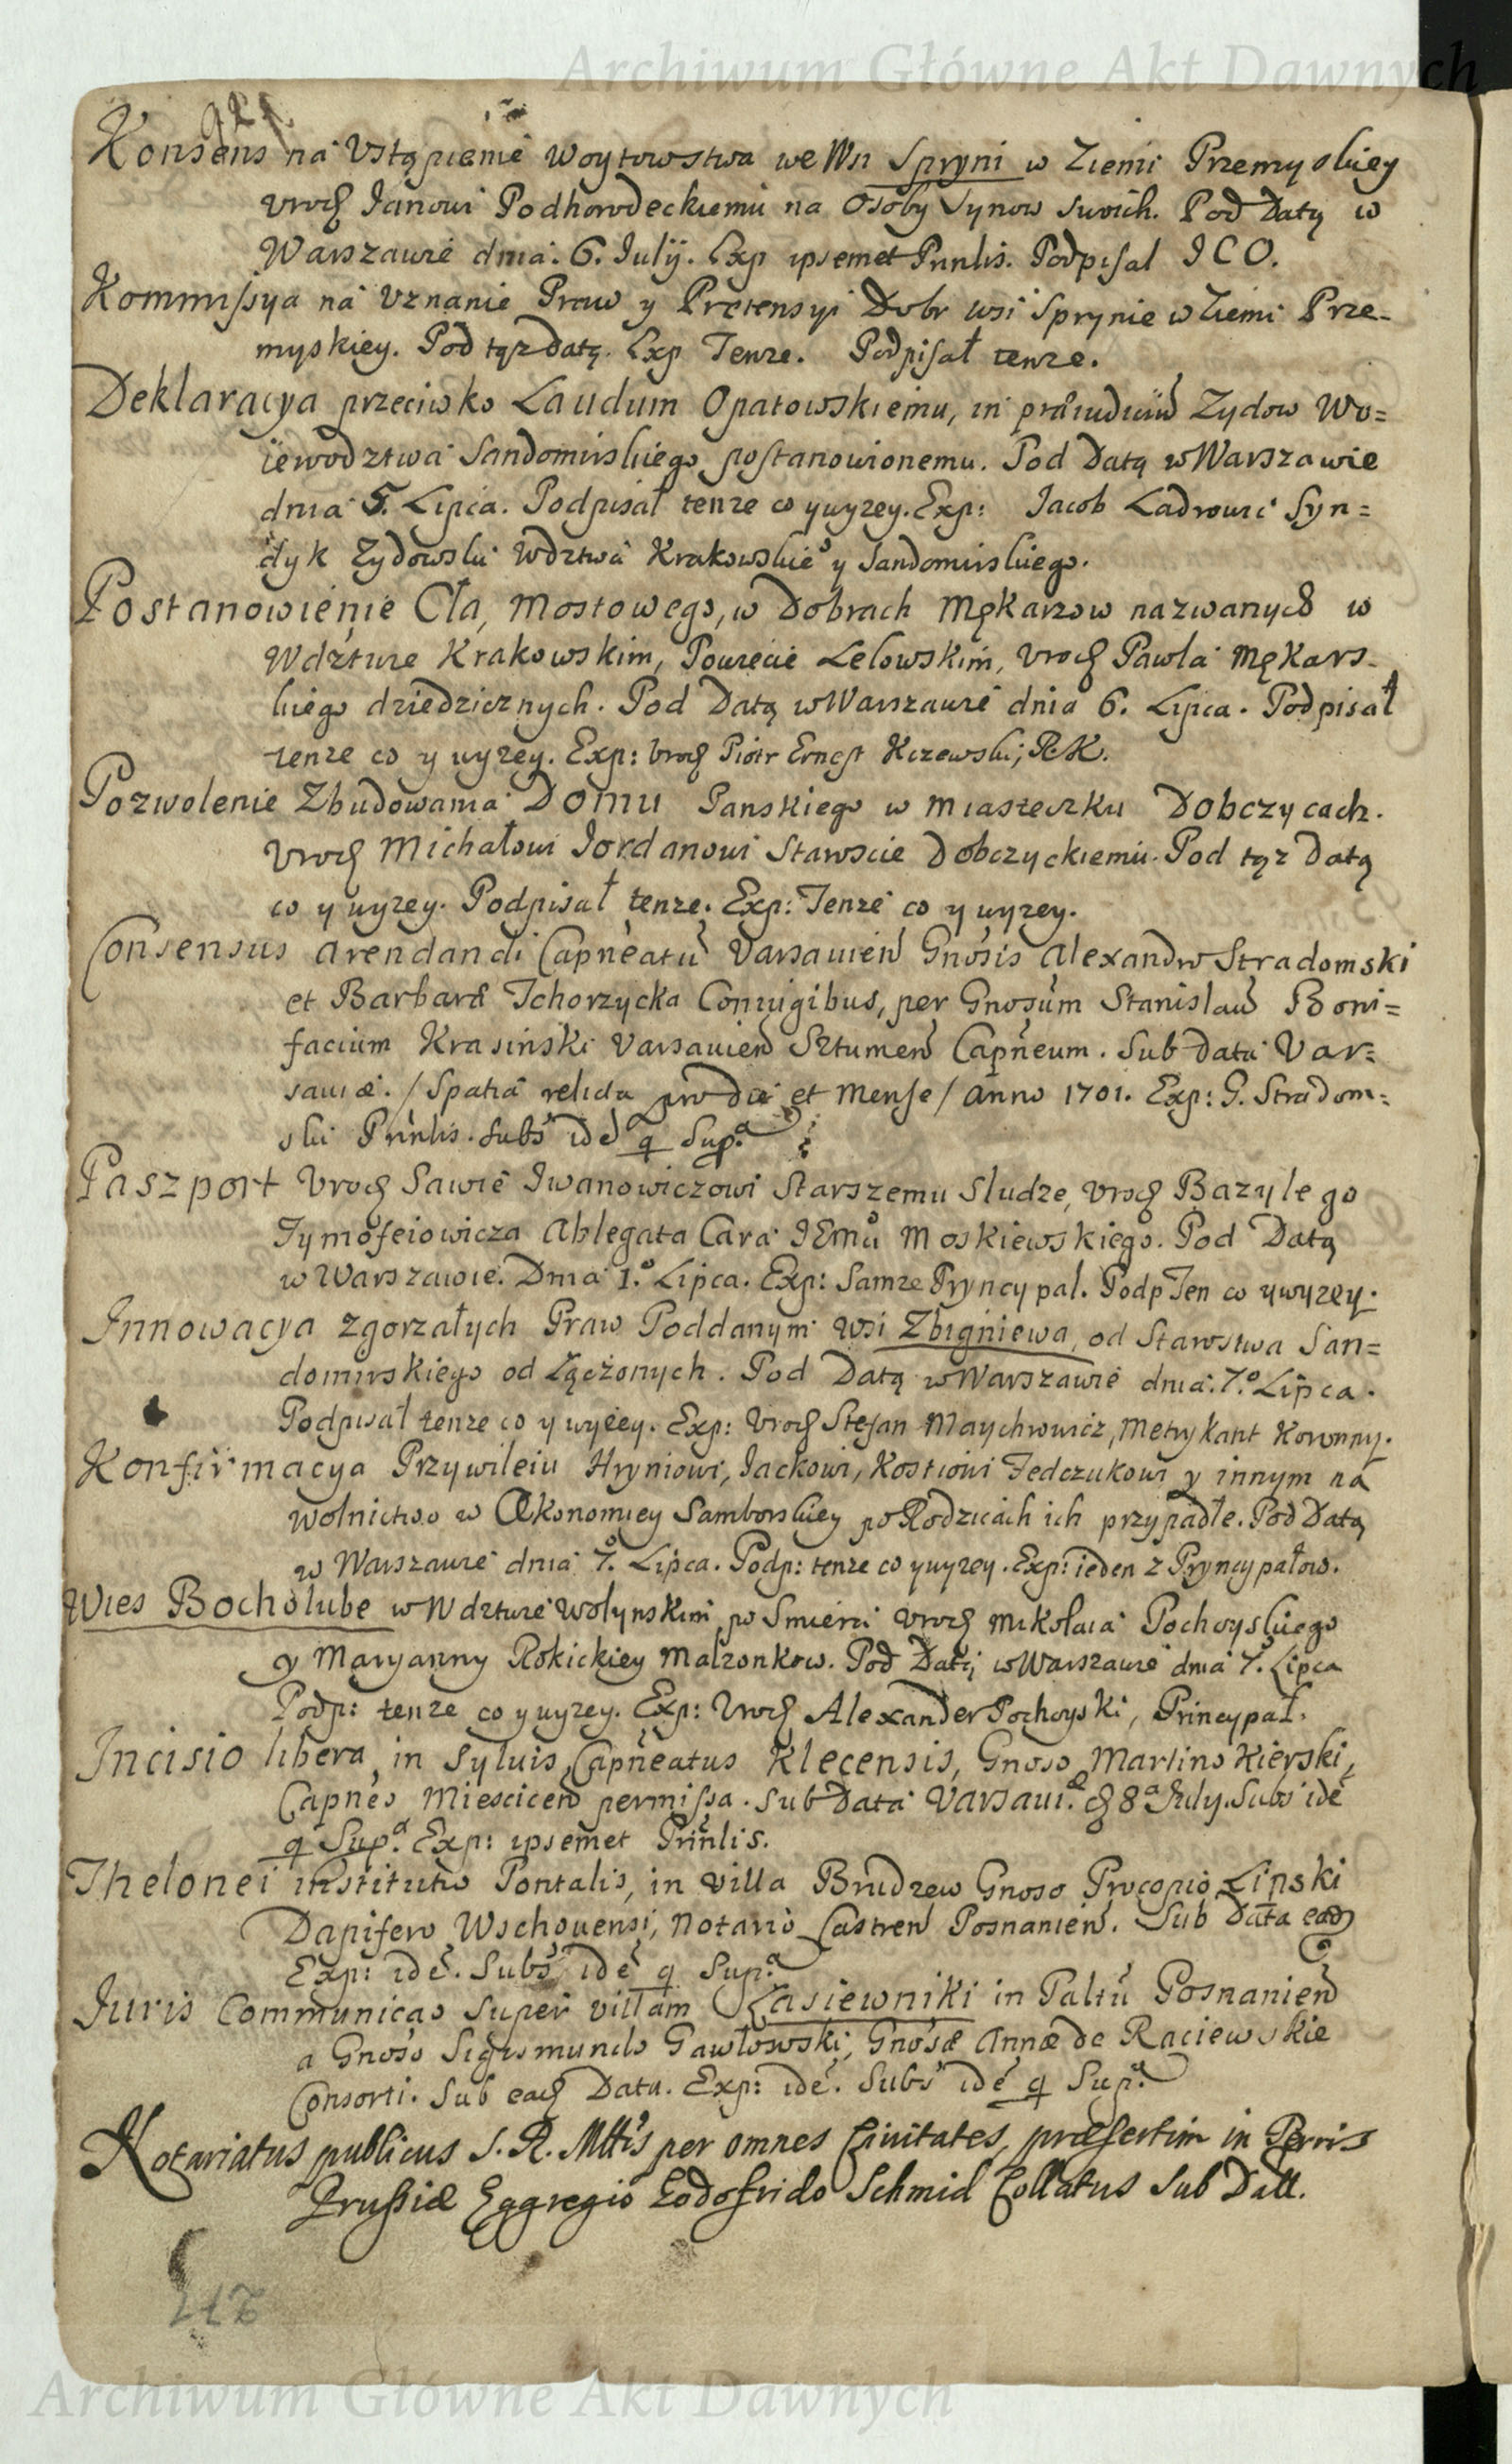 Archiwum Główne Akt Dawnych
Konsens na Vstąpienie Woytowstwa we Wsi Spryni w Ziemi Przemyskiey
Vroḋ Janowi Podhorodeckiemu na Osoby Synow swich. Pod Datą w
Warszawie dnia 6. Iulij. Exp ipsemet Prnlis. Podpisal ICO.
Kommissya na Vznanie Praw y Pretensyi Dobr wsi Sprynie w Ziemi Prze-
myskiey. Pod tąz Datą. Exp Tenze. Podpisał tenze.
Deklaracya przeciwko Laudum Opatowskiemu, in præiudiciũ Zydow Wo=
iewodztwa Sandomirskiego postanowionemu. Pod Datą w Warszawie
dnia 5. Lipca. Podpisał tenze co y wyzey. Exp: Jacob Ladrowic Syn=
dyk Zydowski Wdztwa Krakowskie° y Sandomirskiego.
Postanowienie Cła, Mostowego, w Dobrach Mękarzow nazwanych w
Wdztwie Krakowskim, Powiecie Lelowskim, Vroḋ Pawla Mękars-
kiego dziedzicznych. Pod Datą w Warszawie dnia 6. Lipca. Podpisał
tenze co y wyzey. Exp: Vroḋ Piotr Ernest Kczewski; R.K.
Pozwolenie Zbudowania Domu Panskiego w miasteczku Dobczycach.
Vroḋ Michałowi Jordanowi Staroscie Dobczyckiemu. Pod tąz Datą
co y wyzey. Podpisał tenze. Exp: Tenze co y wyzey.
Consensus arendandi Capneatũ Varsavień Gnosis Alexandro Stradomski
et Barbaræ Tchorzycka Coniugibus, per Gnosum Stanislaũ Boni=
facium Krasiński Varsavień Sztumeń Capneum. Sub Data Var=
saviæ. / Spatia relicta pro die et Mense / Anno 1701. Exp: G. Stradom=
ski Prinlis. Subs idẽ q Sup.ª
Paszport Vroḋ Sawie Iwanowiczowi Starszemu Sludze, Vroḋ Bazylego
Tymofeiowicza Ablegata Cara IEm° Moskiewskiego. Pod Datą
w Warszawie. Dnia 1.° Lipca. Exp: Samze Pryncypal. Podp Ten co y wyzey.
Innowacya zgorzałych Praw Poddanym wsi Zbigniewa, od Starostwa San=
domirskiego od Łączonych. Pod Datą w Warszawie dnia. 7.° Lipca.
Podpisał tenze co y wyzey. Exp: Vroḋ Stefan Maychrowicz, Metrykant Koronny.
Konfirmacya Przywileiu Hryniowi, Jackowi, Kostiowi Fedczukowi y innym na
wolnictwo w Œkonomiey Samborskiey po Rodzicach ich przypadłe. Pod Datą
w Warszawie dnia 7.° Lipca. Podp: tenze co y wyzey. Exp: ieden z Pryncypałow.
Wies Bocholube w Wdztwie Wolynskim po Smierci Vroḋ Mikołaia Pochoyskiego
y Maryanny Rokickiey Malzonkow. Pod Datą w Warszawie dnia 7.° Lipca
Podp: tenze co y wyzey. Exp: Vroḋ Alexander Pochoyski, Princypał.
Incisio libera, in Syluis, Capneatus Klecensis, Gnoso Martino Kierski,
Capneo Miesciceń permissa. Sub Data Varsavi.æ ḋ 8ª July. Subs idẽ
q Sup.ª Exp: ipsemet Prinlis.
Thelonei institutio Pontalis, in villa Brudzew Gnoso Procopio Lipski
Dapifero Wschouensi, Notario Castreń Posnanień. Sub Data eaḋ
Exp: idẽ. Subs idẽ q Sup.ª
Iuris Communicao super villam Łasiewniki in Palťu Posnanień
a Gnoso Sigismundo Gawłowski, Gnosæ Annæ de Raciewskie
Consorti. Sub eaḋ Data. Exp: idẽ. Subs idẽ q Sup.ª
Notariatus publicus S. R. Mttis per omnes Civitates, præsertim in Terris
Prussiæ Eggregio Godofrido Schmid Collatus Sub Datt.
Archiwum Główne Akt Dawnych